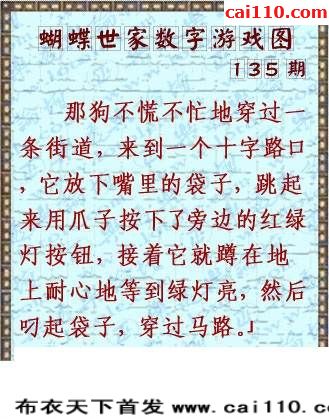 cai110.com
蝴蝶世家数字游戏图
135期
那狗不慌不忙地穿过一
条街道，来到一个十字路口
，它放下嘴里的袋子，跳起
来用爪子按下了旁边的红绿
灯按钮，接着它就蹲在地
上耐心地等到绿灯亮，然后
叼起袋子，穿过马路。」
布衣天下首发 www.cai110.c